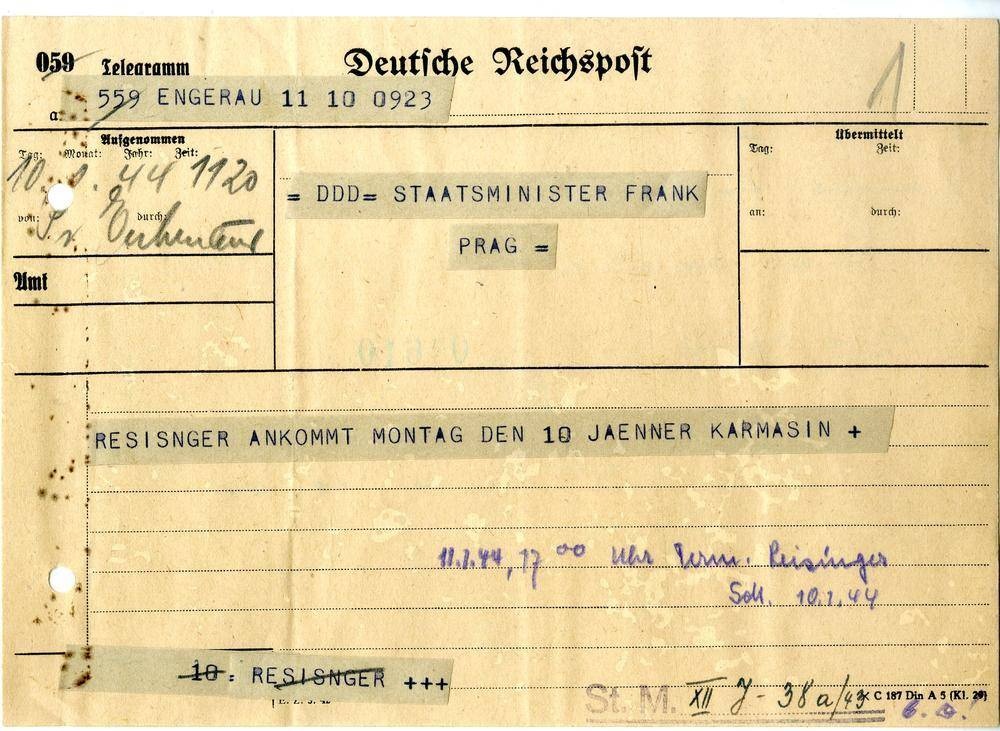 059 Telegramm Deutsche Reichspost 1
559 ENGERAU 11 10 0923
Aufgenommen
Tag: Monat: Jahr: Zeit:
10. 1. 44 1120
von: durch:
Amt
= DDD= STAATSMINISTER FRANK
PRAG =
Übermittelt
Tag: Zeit:
an: durch:
RESISNGER ANKOMMT MONTAG DEN 10 JAENNER KARMASIN +
11.1.44, 17 00 Uhr Term. Reisinger
10.1.44
10 = RESISNGER +++
St. M. XII J - 38a/43
C 187 Din A 5 (Kl. 29)